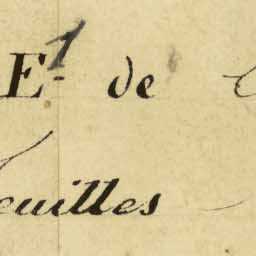 E¹ de
euilles